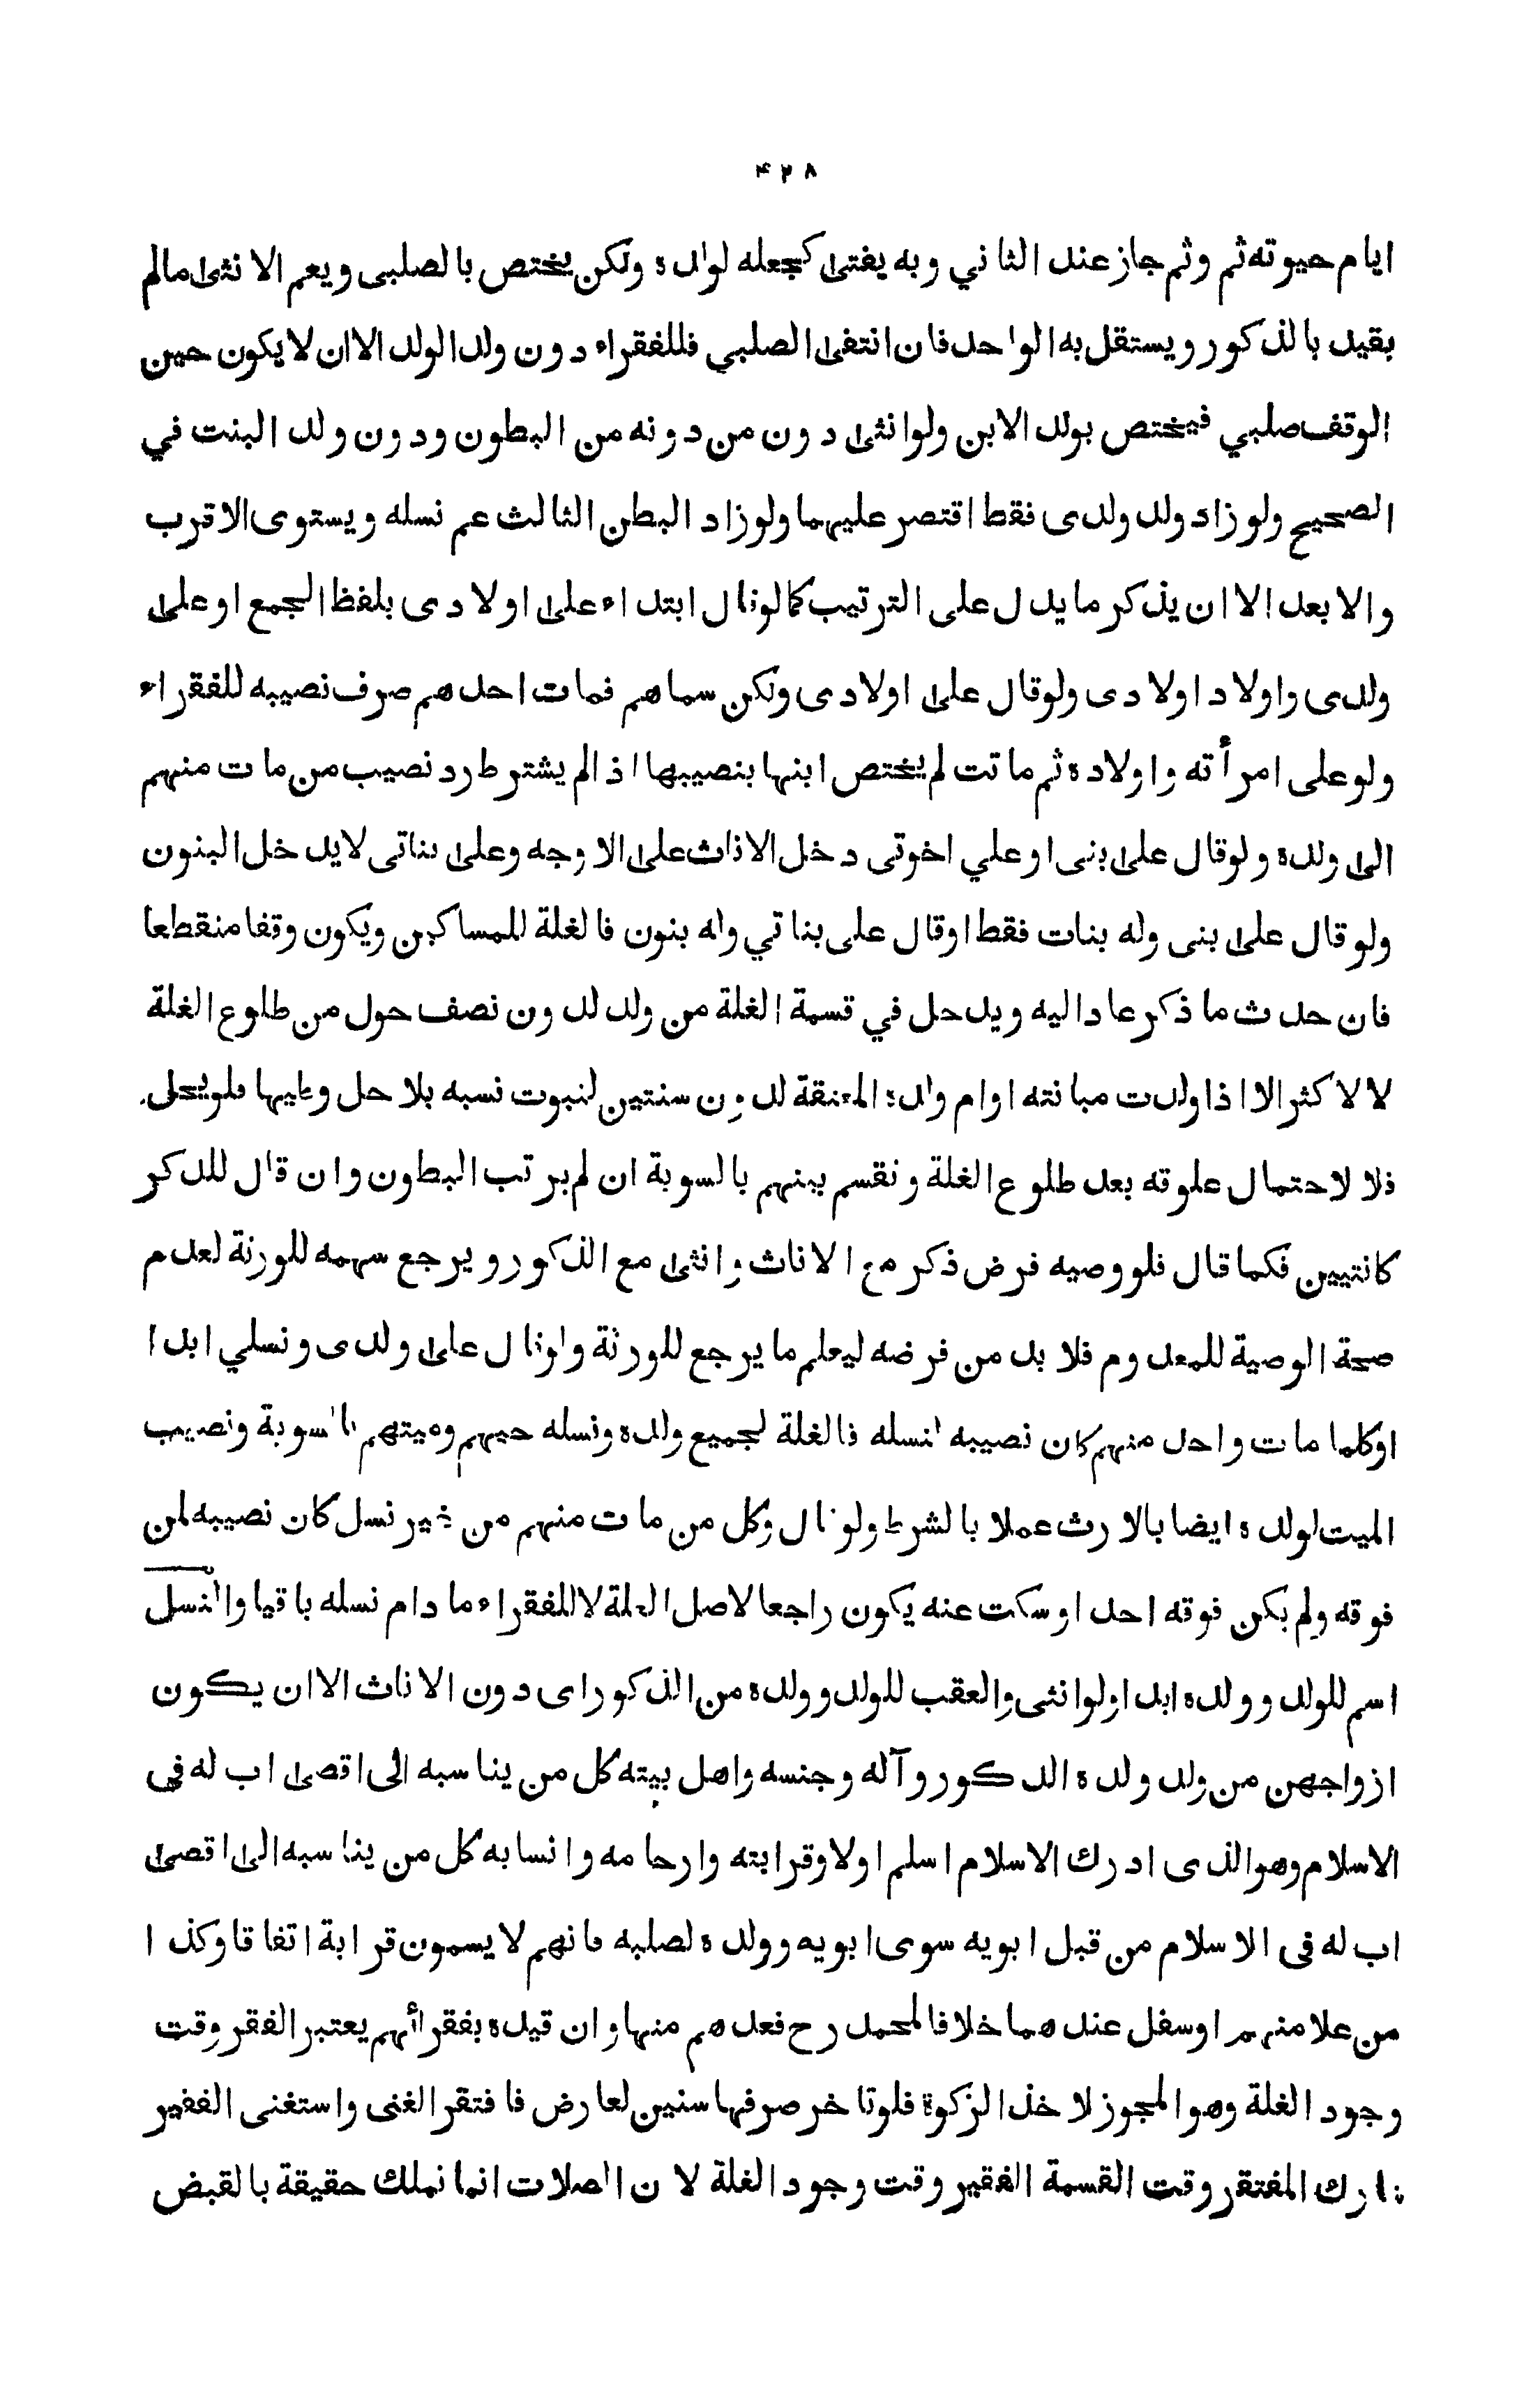 ۴۲۸
ايام حيوته ثم وثم جاز عند الثاني وبه يفتى كجعله لولده ولكن يختص بالصلبى ويعم الانثى مالم
يقيد بالذكور ويستقل به الواحد فان انتفى الصلبي فللفقراء دون ولد الولد الا ان لا يكون حين
الوقف صلبي فيختص بولد الابن ولو انثى دون من دونه من البطون ودون ولد البنت في
الصحيح ولو زاد ولد ولدى فقط اقتصر عليهما ولو زاد البطن الثالث عم نسله ويستوى الاقرب
والابعد الا ان يذكر ما يدل على الترتيب كما لو قال ابتداء على اولادى بلفظ الجمع او على
ولدى واولاد اولادى ولو قال على اولادى ولكن سماهم فمات احدهم صرف نصيبه للفقراء
ولو على امرأته واولاده ثم ماتت لم يختص ابنها بنصيبها اذا لم يشترط رد نصيب من مات منهم
الى ولده ولو قال على بنى او علي اخوتى دخل الاناث على الاوجه وعلى بناتى لا يدخل البنون
ولو قال على بنى وله بنات فقط او قال على بناتي وله بنون فالغلة للمساكين ويكون وقفا منقطعا
فان حدث ما ذكر عاد اليه ويدخل في قسمة الغلة من ولد لدون نصف حول من طلوع الغلة
لا لاكثر الا اذا ولدت مبانته او ام ولده المعتقة لدون سنتين لثبوت نسبه بلا حل وطيها فلو يحل
فلا لاحتمال علوقه بعد طلوع الغلة ونقسم بينهم بالسوية ان لم يرتب البطون وان قال للذكر
كانثيين فكما قال فلو وصيه فرض ذكر مع الاناث وانثى مع الذكور ويرجع سهمه للورثة لعدم
صحة الوصية للمعدوم فلا بد من فرضه ليعلم ما يرجع للورثة ولو قال على ولدى ونسلي ابدا
او كلما مات واحد منهم كان نصيبه لنسله فالغلة لجميع ولده ونسله حيهم وميتهم بالسوية ونصيب
الميت لولده ايضا بالارث عملا بالشرط ولو قال وكل من مات منهم من غير نسل كان نصيبه لمن
فوقه ولم يكن فوقه احد او سكت عنه يكون راجعا لاصل الغلة لا للفقراء ما دام نسله باقيا والنسل
اسم للولد وولده ابدا ولو انثى والعقب للولد وولده من الذكور اى دون الاناث الا ان يكون
ازواجهن من ولد ولده الذكور وآله وجنسه واهل بيته كل من يناسبه الى اقصى اب له فى
الاسلام وهو الذى ادرك الاسلام اسلم او لا وقرابته وارحامه وانسابه كل من يناسبه الى اقصى
اب له فى الاسلام من قبل ابويه سوى ابويه وولده لصلبه فانهم لا يسمون قرابة اتفاقا وكذا
من علا منهم او سفل عندهما خلافا لمحمد رح فعدهم منها وان قيده بفقرائهم يعتبر الفقر وقت
وجود الغلة وهو المجوز لاخذ الزكوة فلو تاخر صرفها سنين لعارض فافتقر الغنى واستغنى الفقير
شارك المفتقر وقت القسمة الفقير وقت وجود الغلة لان الصلات انما تملك حقيقة بالقبض